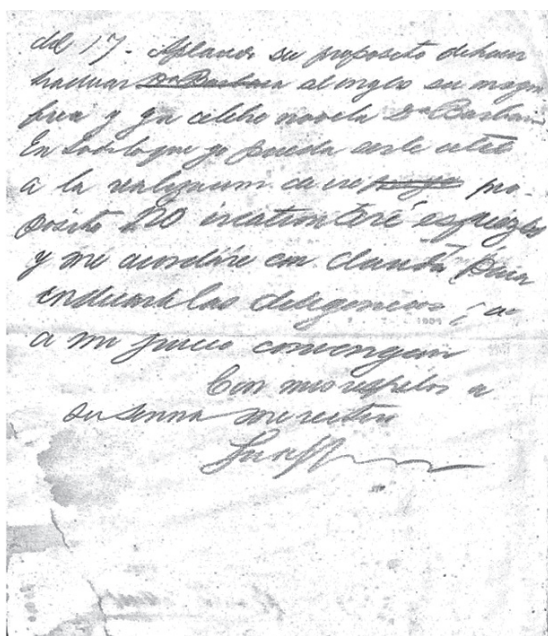 del 17. Aplaudo su propósito de hacer
traducir Da Barbara al inglés su magní
fica y ya célebre novela Da Barbara
En todo lo que yo pueda serle útil
a la realización de ese pro-
pósito no escatimaré esfuerzos
y me acordaré con Claudia para
indicarle las diligencias q. a
a mi juicio convengan
Con mis respetos a
su senora me reitero